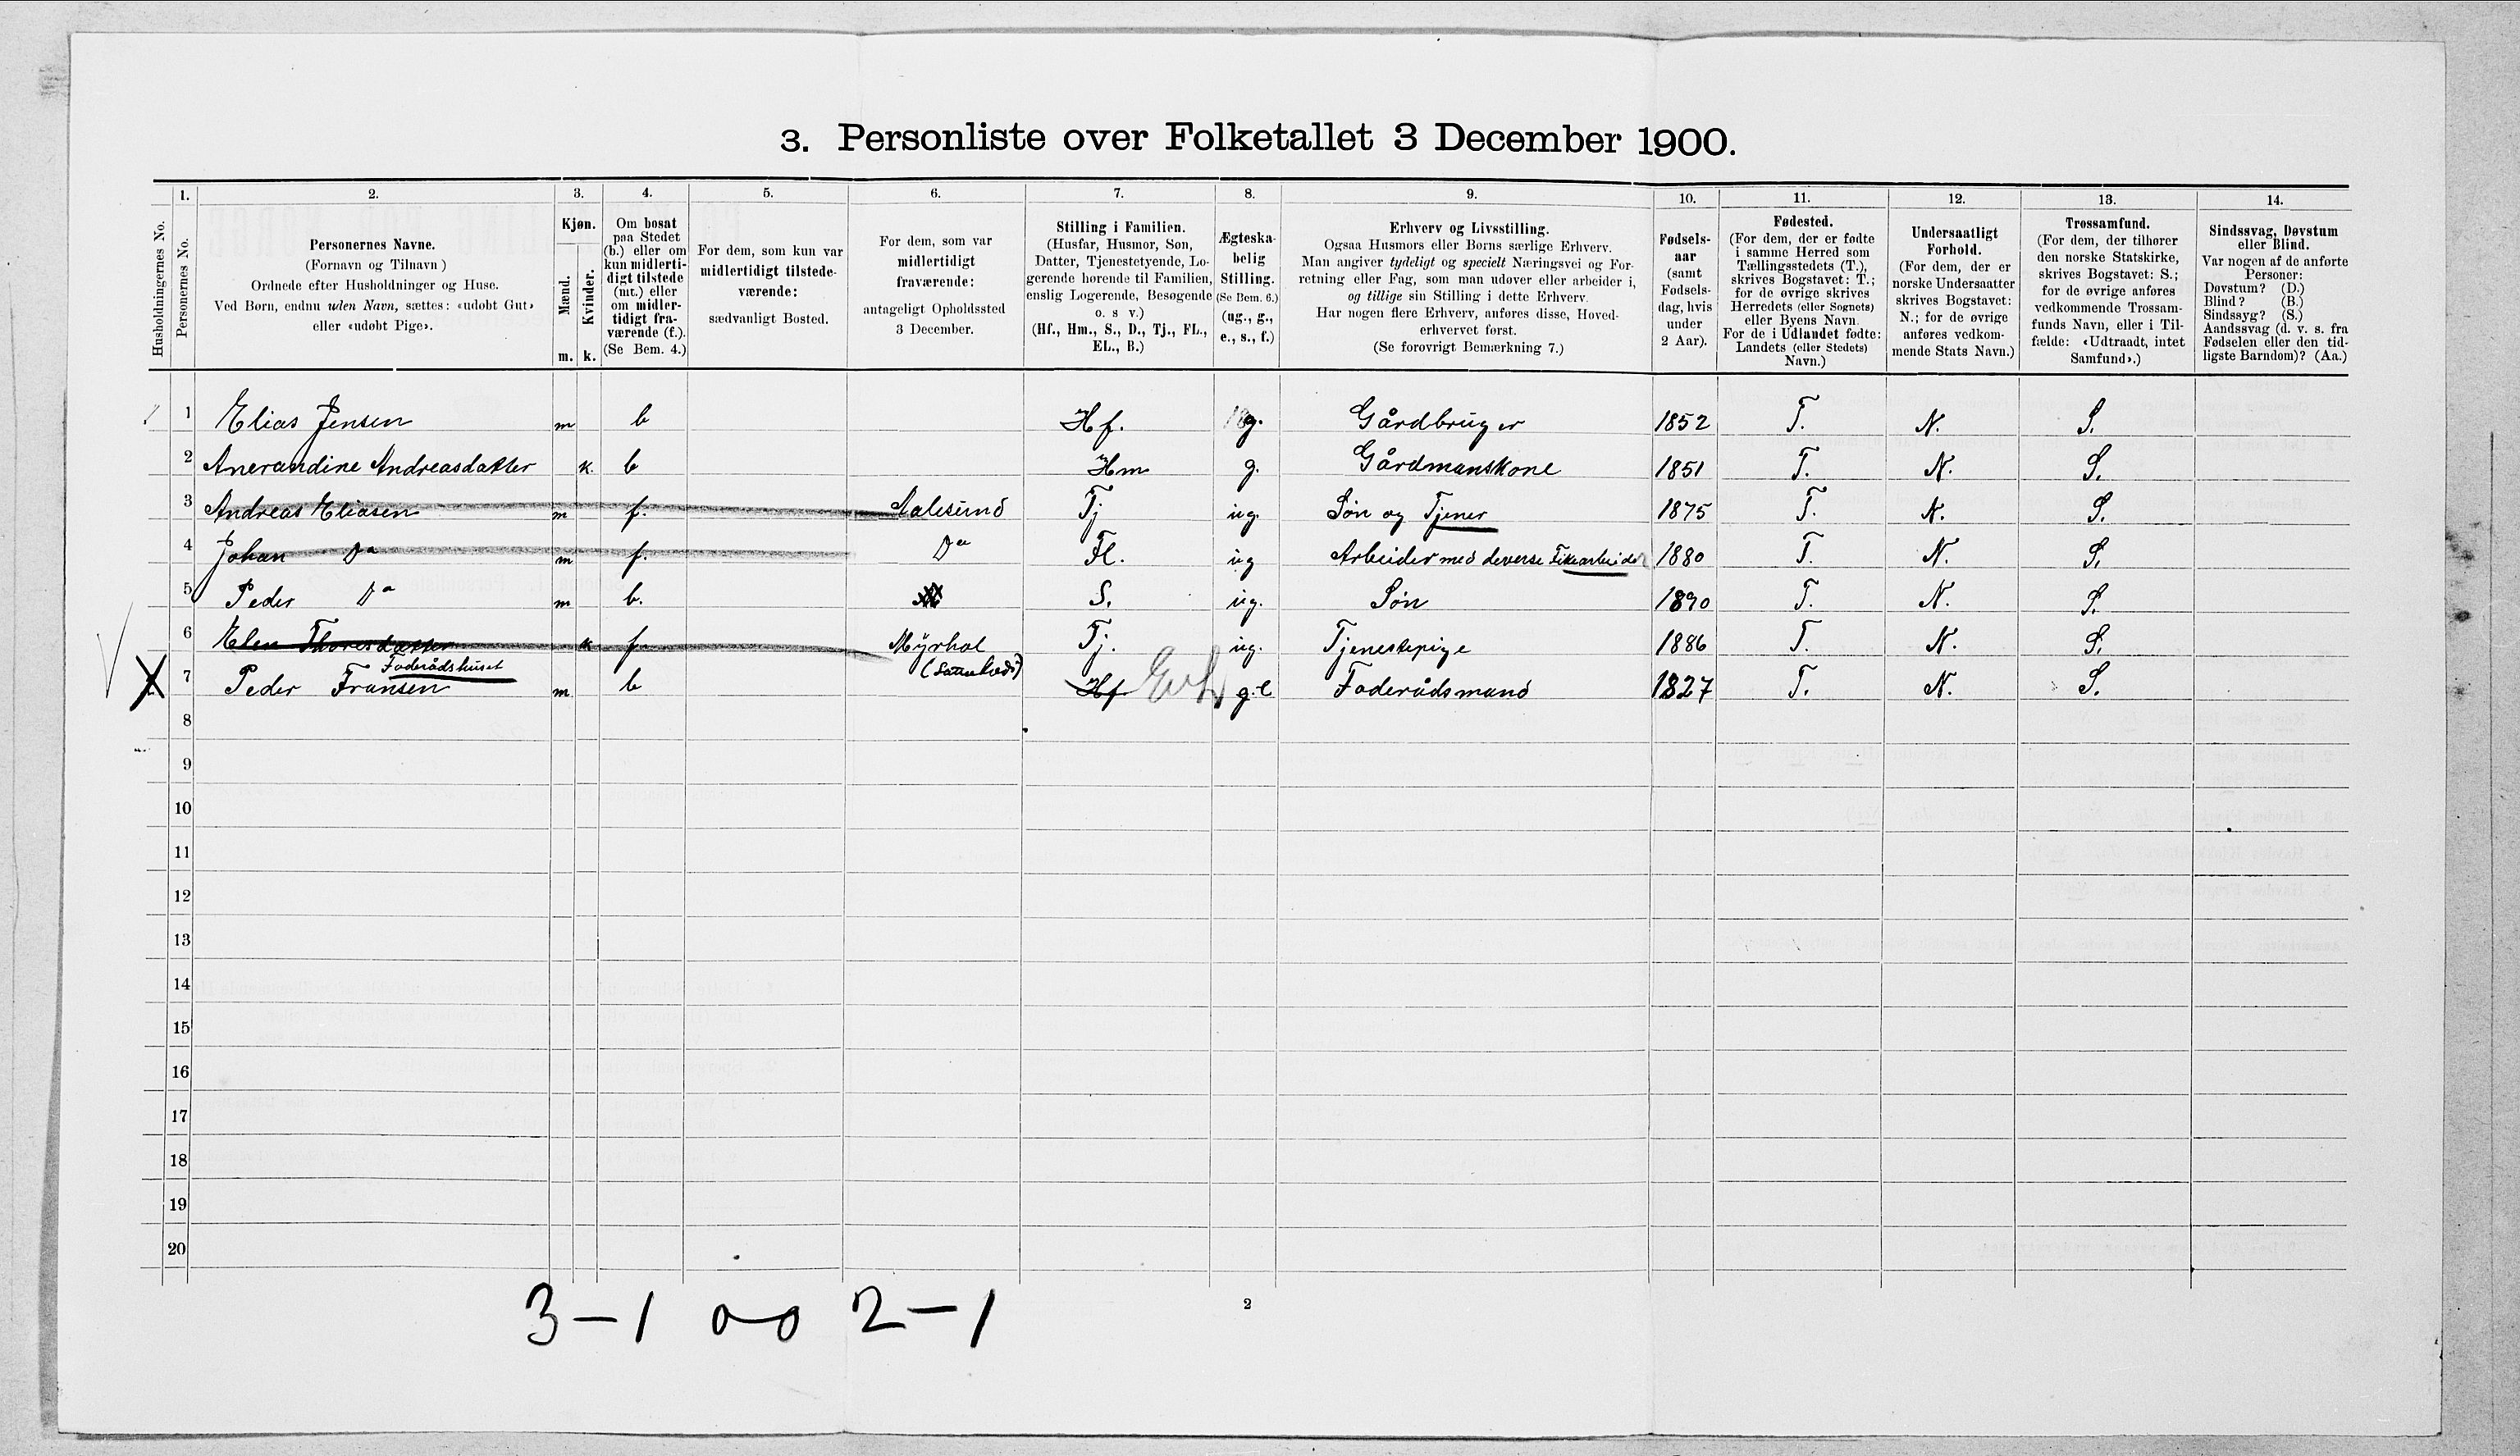 3. Personliste over Folketallet 3 December 1900.
1. 2. 3. 4. 5. 6. 7. 8. 9. 10. 11. 12. 13. 14.
Husholdningernes No.
Personernes No.
Personernes Navne.
(Fornavn og Tilnavn)
Ordnede efter Husholdninger og Huse.
Ved Børn, endnu uden Navn, sættes: «udøbt Gut»
eller «udøbt Pige».
Kjøn.
Mænd.
Kvinder.
m. k.
Om bosat
paa Stedet
(b.) eller om
kun midlerti-
digt tilstede
(mt.) eller
om midler-
tidigt fra-
værende (f.).
(Se Bem. 4.)
For dem, som kun var
midlertidigt tilstede-
værende:
sædvanligt Bosted.
For dem, som var
midlertidigt
fraværende:
antageligt Opholdssted
3 December.
Stilling i Familien.
(Husfar, Husmor, Søn,
Datter, Tjenestetyende, Lo-
gerende hørende til Familien,
enslig Logerende, Besøgende
o. s v.)
(Hf., Hm., S., D., Tj., FL.,
EL., B.)
Ægteska-
belig
Stilling.
(Se Bem. 6.)
(ug., g.,
e., s., f.)
Erhverv og Livsstilling.
Ogsaa Husmors eller Børns særlige Erhverv.
Man angiver tydeligt og specielt Næringsvei og For-
retning eller Fag, som man udøver eller arbeider i,
og tillige sin Stilling i dette Erhverv.
Har nogen flere Erhverv, anføres disse, Hoved-
erhvervet først.
(Se forøvrigt Bemærkning 7.)
Fødsels-
aar
(samt
Fødsels-
dag, hvis
under
2 Aar).
Fødested.
(For dem, der er fødte
i samme Herred som
Tællingsstedets (T.),
skrives Bogstavet: T.;
for de øvrige skrives
Herredets (eller Sognets)
eller Byens Navn.
For de i Udlandet fødte:
Landets (eller Stedets)
Navn.)
Undersaatligt
Forhold.
(For dem, der er
norske Undersaatter
skrives Bogstavet:
N.; for de øvrige
anføres vedkom-
mende Stats Navn.)
Trossamfund.
(For dem, der tilhører
den norske Statskirke,
skrives Bogstavet: S.;
for de øvrige anføres
vedkommende Trossam-
funds Navn, eller i Til-
fælde: «Udtraadt, intet
Samfund».)
Sindssvag, Døvstum
eller Blind.
Var nogen af de anførte
Personer:
Døvstum? (D.)
Blind? (B.)
Sindssyg? (S.)
Aandssvag (d. v. s. fra
Fødselen eller den tid-
ligste Barndom)? (Aa.)
1 Elias Jensen m b Hf. g. Gårdbruger 1852 T. N. S.
2 Anerandine Andreasdatter k. b Hm g. Gårdmanskone 1851 T. N. S.
3 Andreas Eliasen m f. Aalesund Tj ug. Søn og Tjener 1875 T. N. S.
4 Johan Do m f. Do Fl. ug Arbeider med deverse 1880 T. N. S.
5 Peder Do m b. S. ug. Søn 1890 T. N. S.
6 Elen Thoresdatter k f. Myrhol Tj. ug. Tjenestepige 1886 T. N. S.
Foderådshuset
7 Peder Fransen m. b Hf g. e Foderådsmand 1827 T. N. S.
8
9
10
11
12
13
14
15
16
17
18
19
20
3-1 0-0 2-1
2